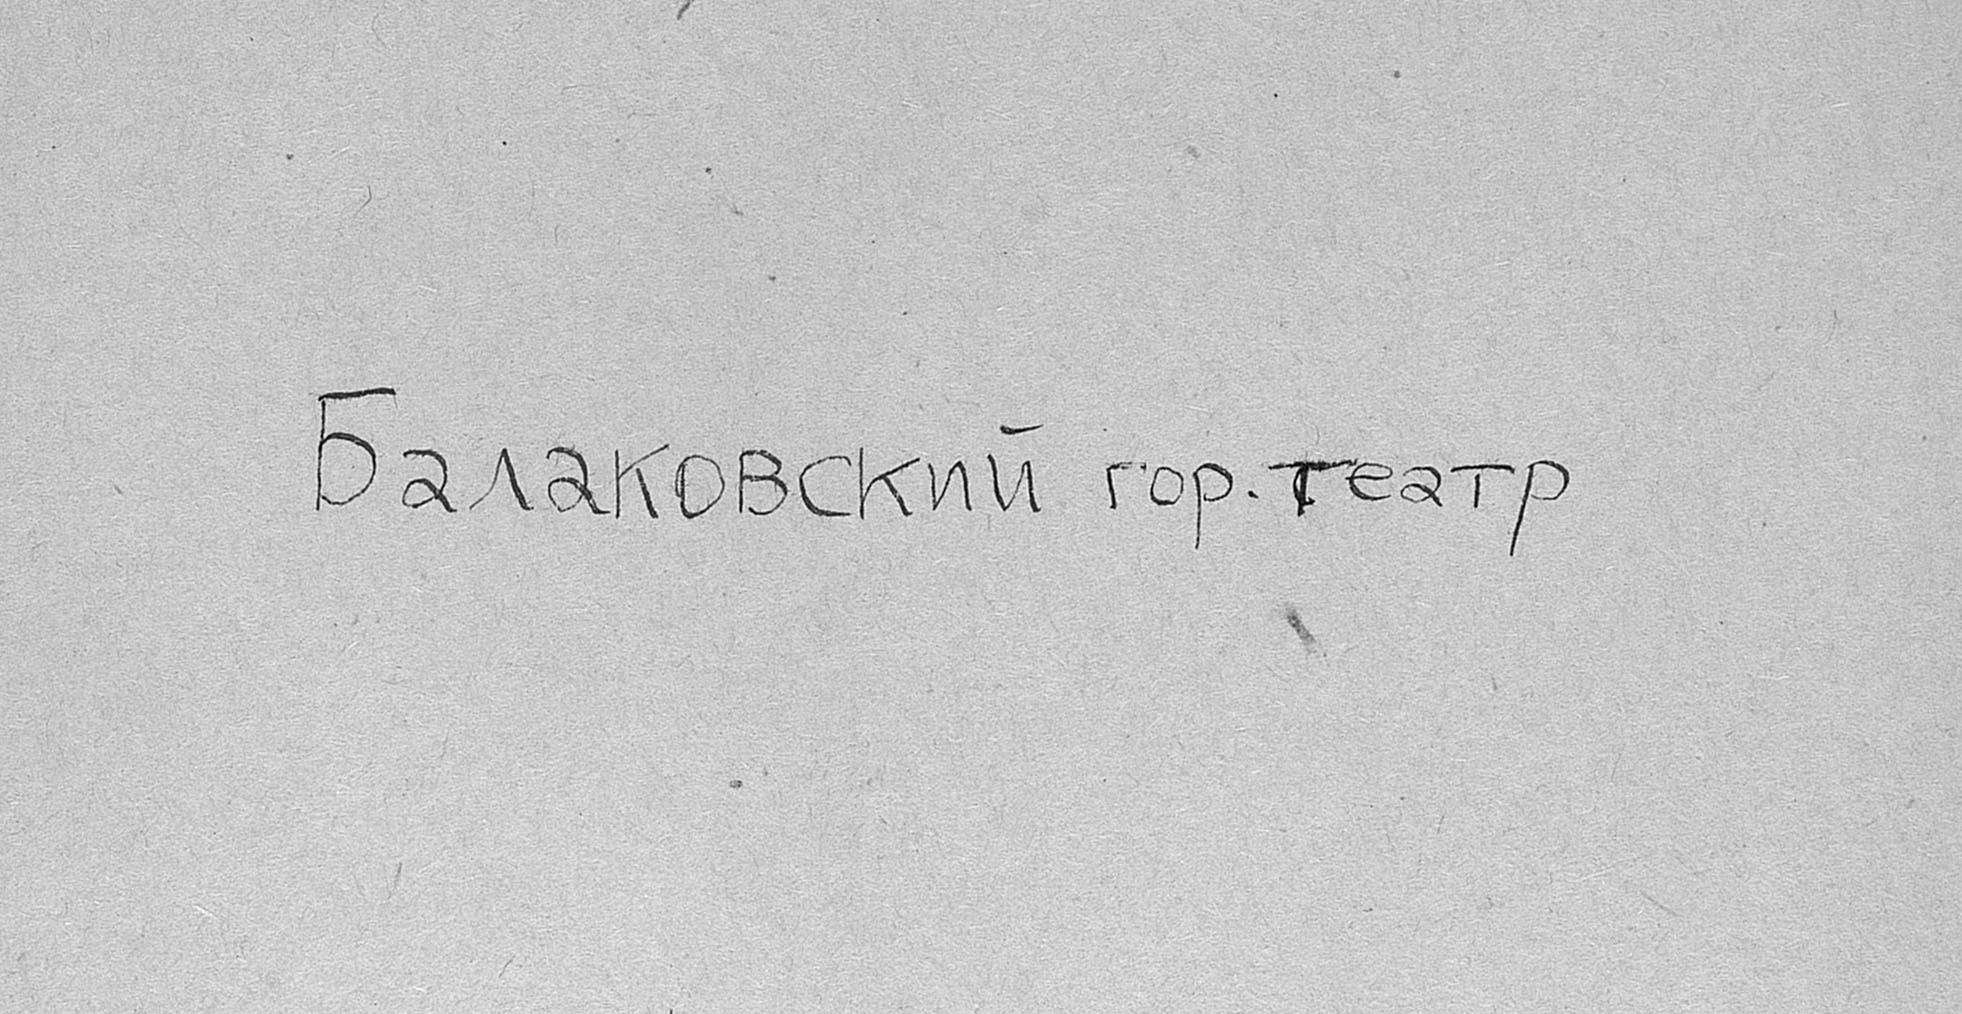 Балаковский гор. театр